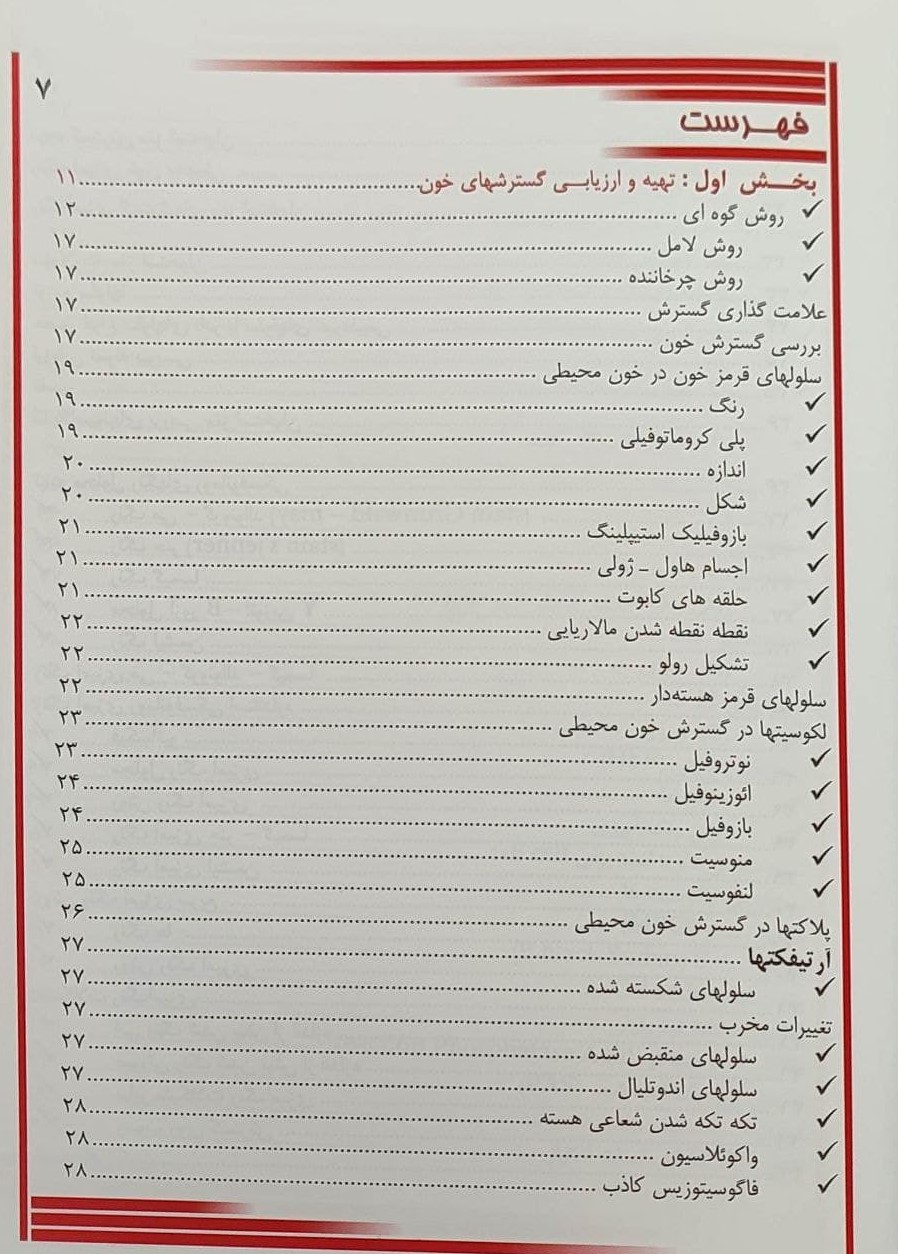 ۷
فهرست
بخش اول : تهیه و ارزیابی گسترشهای خون ۱۱
✓ روش گوه ای ۱۲
✓ روش لامل ۱۷
✓ روش چرخاننده ۱۷
علامت گذاری گسترش ۱۷
بررسی گسترش خون ۱۷
سلولهای قرمز خون در خون محیطی ۱۹
✓ رنگ ۱۹
✓ پلی کروماتوفیلی ۱۹
✓ اندازه ۲۰
✓ شکل ۲۰
✓ بازوفیلیک استیپلینگ ۲۱
✓ اجسام هاول - ژولی ۲۱
✓ حلقه های کابوت ۲۱
✓ نقطه نقطه شدن مالاریایی ۲۲
✓ تشکیل رولو ۲۲
سلولهای قرمز هسته‌دار ۲۲
لکوسیتها در گسترش خون محیطی ۲۳
✓ نوتروفیل ۲۳
✓ ائوزینوفیل ۲۴
✓ بازوفیل ۲۴
✓ منوسیت ۲۵
✓ لنفوسیت ۲۵
پلاکتها در گسترش خون محیطی ۲۶
آرتیفکتها ۲۷
✓ سلولهای شکسته شده ۲۷
تغییرات مخرب ۲۷
✓ سلولهای منقبض شده ۲۷
✓ سلولهای اندوتلیال ۲۷
✓ تکه تکه شدن شعاعی هسته ۲۸
✓ واکوئلاسیون ۲۸
✓ فاگوسیتوزیس کاذب ۲۸